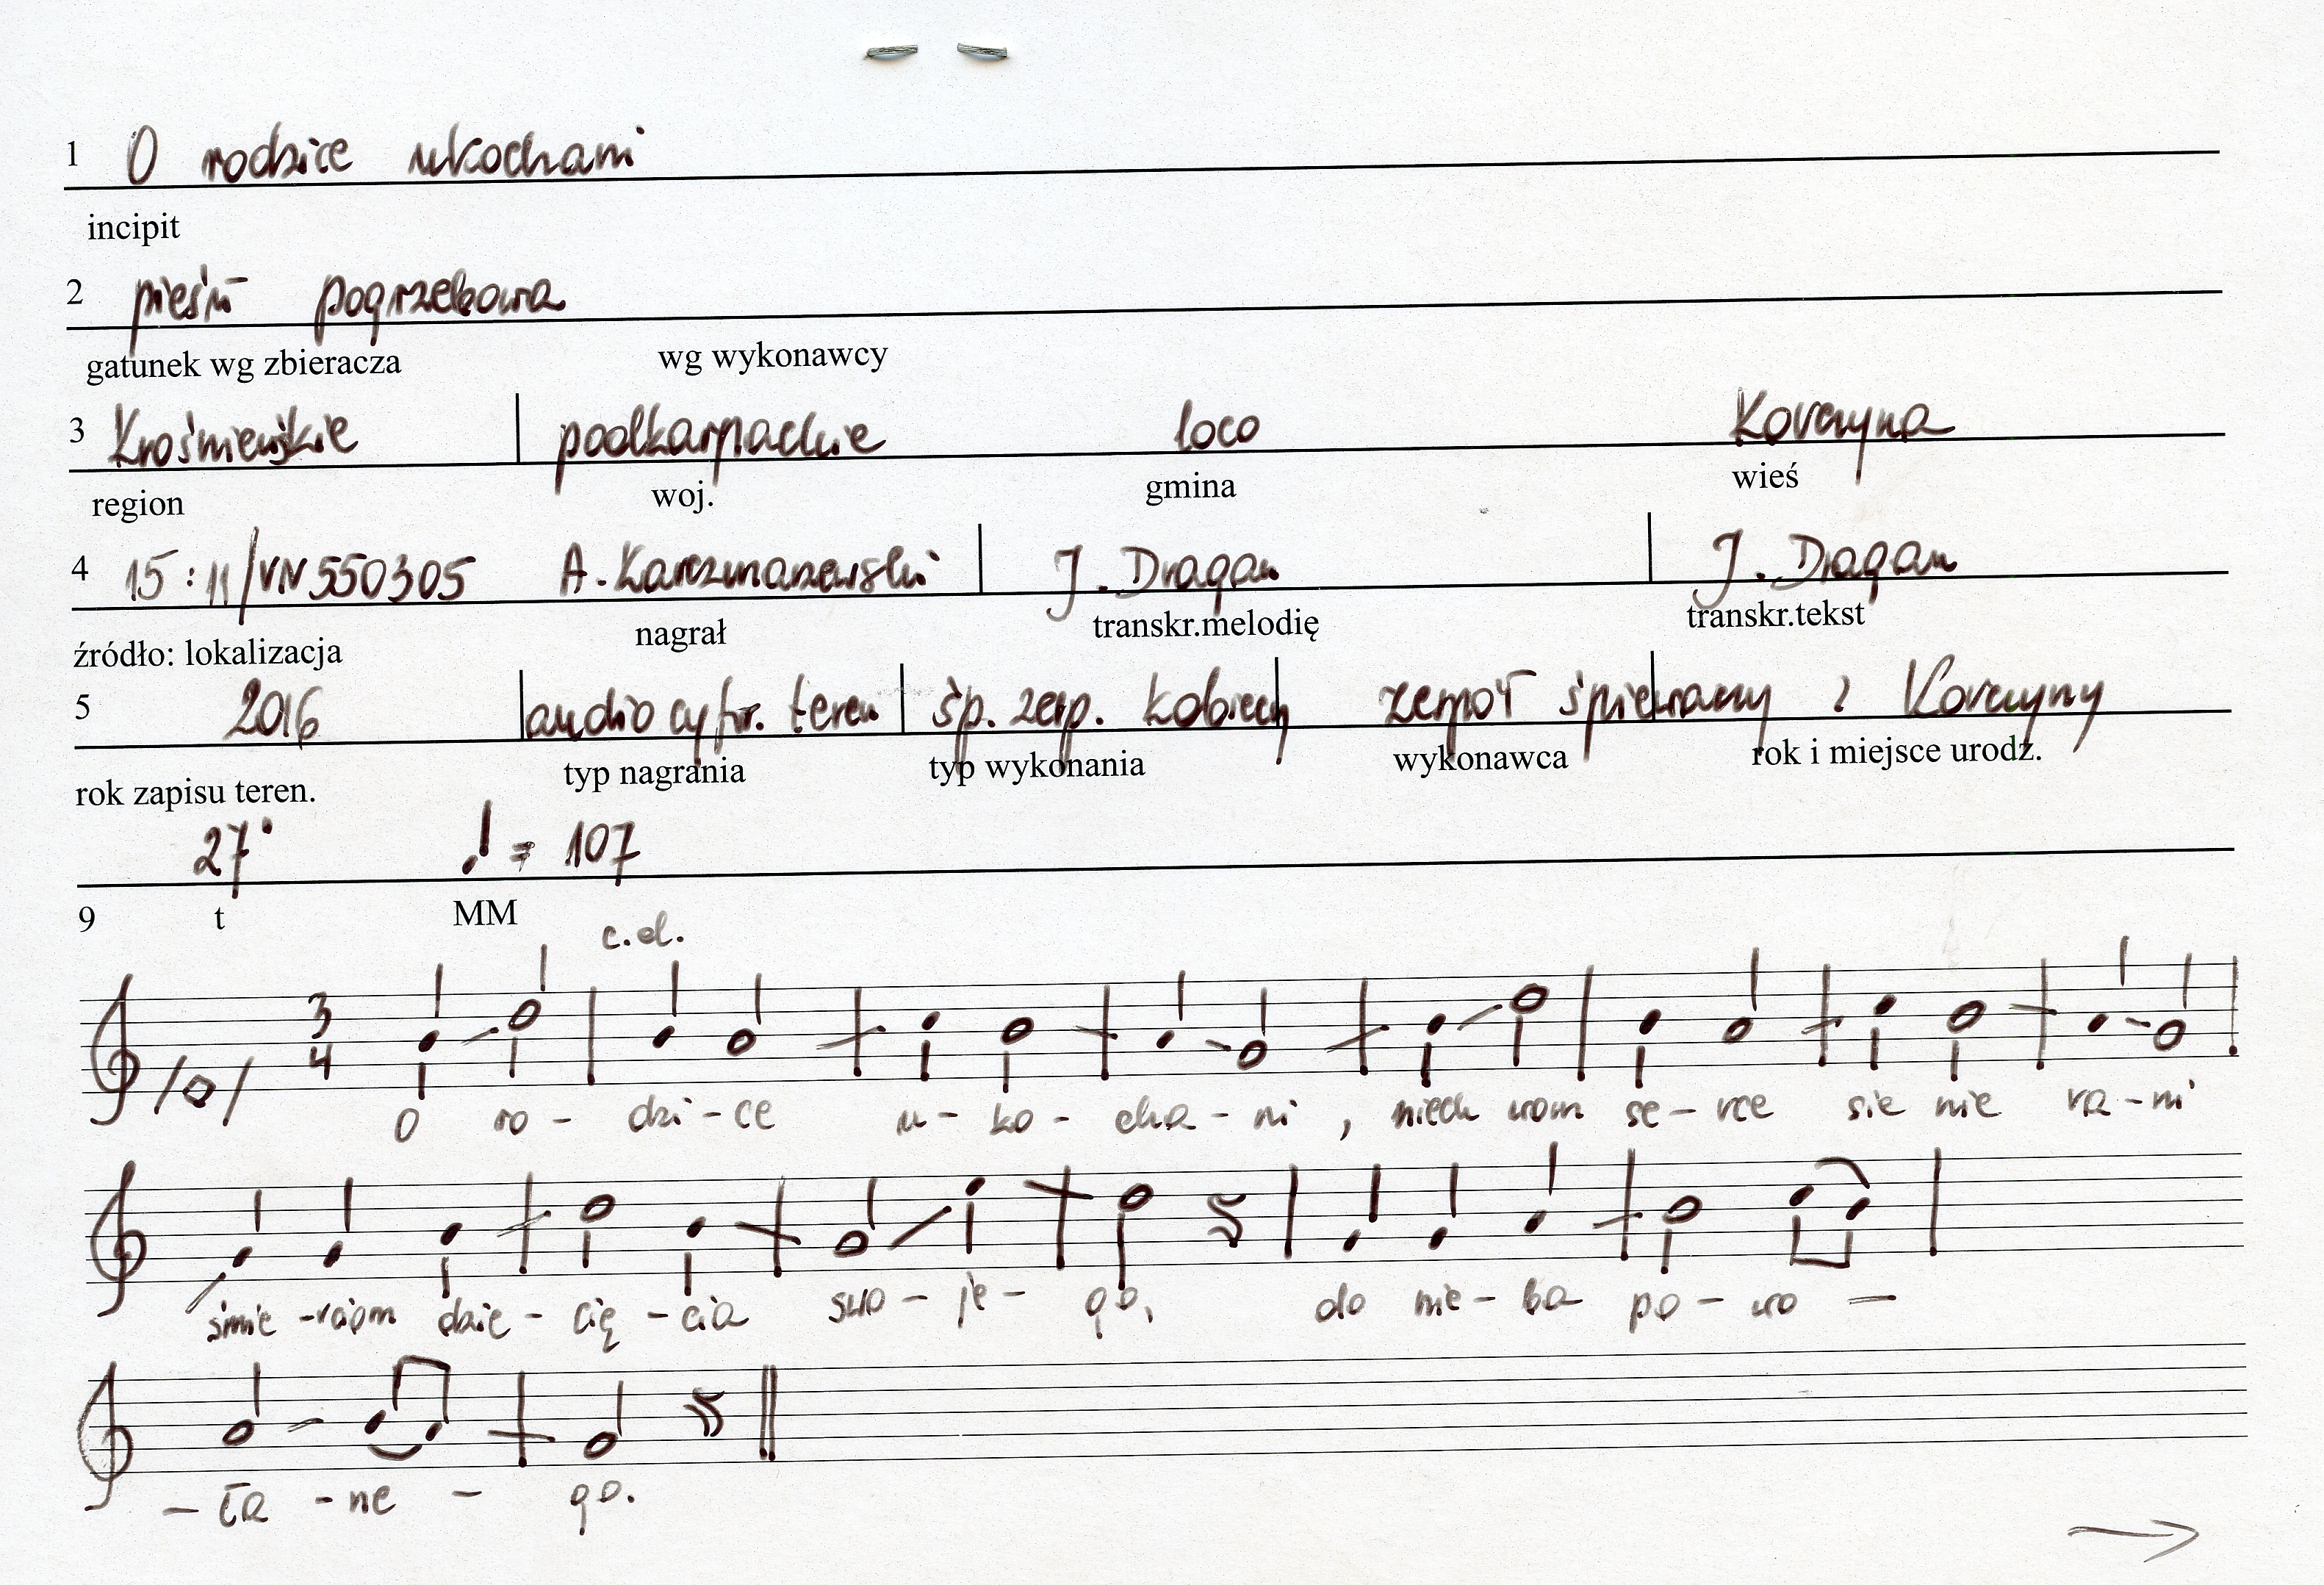 1 O rodzice ukochani
incipit
2 pieśń pogrzebowa
gatunek wg zbieracza wg wykonawcy
3 Krośnieńskie podkarpackie loco Korczyna
region woj. gmina wieś
4 15:11/VN550305 A. Karczmarzewski J. Dragan J. Dragan
źródło: lokalizacja nagrał transkr.melodię transkr.tekst
5 2016 audio cyfr. teren śp. zesp. kobiecy zespół śpiewaczy z Korczyny
rok zapisu teren. typ nagrania typ wykonania wykonawca rok i miejsce urodz.
27" ♩ = 107
9 t MM
c.d.
3
4
O ro - dzi - ce u - ko - cha - ni , niech wam se - rce sie nie ra - ni
śmie - rciom dzie - cię - cia swo - je - go, do nie - ba po - wo —
— ła - ne - go.